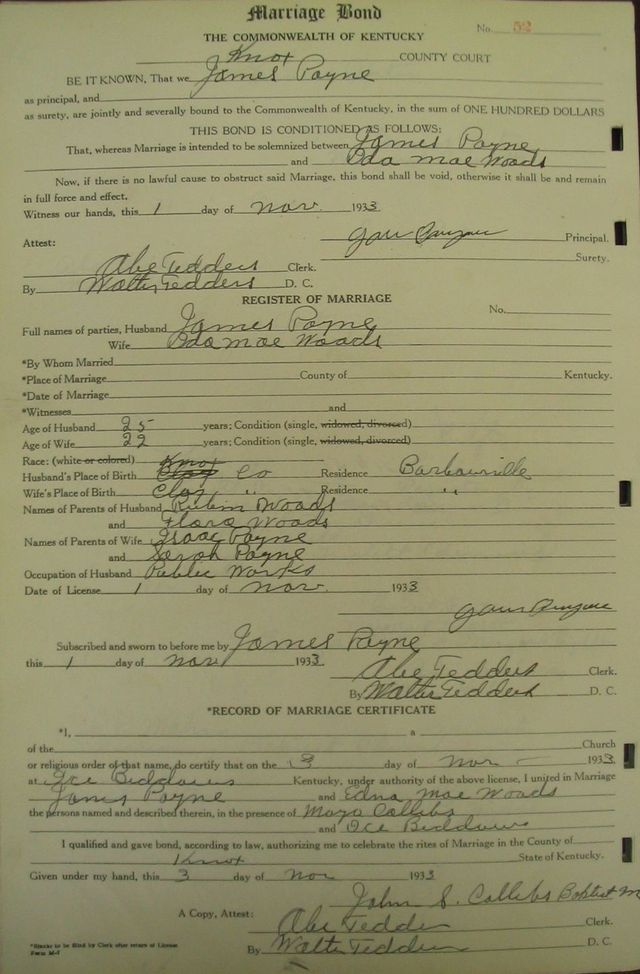 Marriage Bond
No. 52
THE COMMONWEALTH OF KENTUCKY
Knox COUNTY COURT
BE IT KNOWN, That we James Payne
as principal, and
as surety, are jointly and severally bound to the Commonwealth of Kentucky, in the sum of ONE HUNDRED DOLLARS
THIS BOND IS CONDITIONED AS FOLLOWS:
That, whereas Marriage is intended to be solemnized between James Payne
and Eda Mae Woods
Now, if there is no lawful cause to obstruct said Marriage, this bond shall be void, otherwise it shall be and remain
in full force and effect.
Witness our hands, this 1 day of Nov. 1933
Principal.
Attest:
Surety.
Abe Tedders Clerk.
By Walter Tedders D. C.
REGISTER OF MARRIAGE
No.
Full names of parties, Husband James Payne
Wife Eda Mae Woods
*By Whom Married
*Place of Marriage County of Kentucky.
*Date of Marriage
*Witnesses and
Age of Husband 25 years; Condition (single, widowed, divorced)
Age of Wife 22 years; Condition (single, widowed, divorced)
Race: (white or colored)
Husband's Place of Birth Knox Clay Co Residence Barbourville
Wife's Place of Birth Clay " Residence "
Names of Parents of Husband Rubin Woods
and Flora Woods
Names of Parents of Wife Isaac Payne
and Sarah Payne
Occupation of Husband Public Works
Date of License 1 day of Nov. 1933
Subscribed and sworn to before me by James Payne
this 1 day of Nov 1933
Abe Tedders Clerk.
By Walter Tedders D. C.
*RECORD OF MARRIAGE CERTIFICATE
*I, a
of the Church
or religious order of that name, do certify that on the 3 day of Nov 1933
at Kentucky, under authority of the above license, I united in Marriage
James Payne and Edna Mae Woods
the persons named and described therein, in the presence of
and
I qualified and gave bond, according to law, authorizing me to celebrate the rites of Marriage in the County of
Knox State of Kentucky.
Given under my hand, this 3 day of Nov 1933
John S. Collibs Baptist M
A Copy, Attest: Abe Tedder Clerk.
By Walter Tedders D. C.
*Blanks to be filled by Clerk after return of License
Form M-7